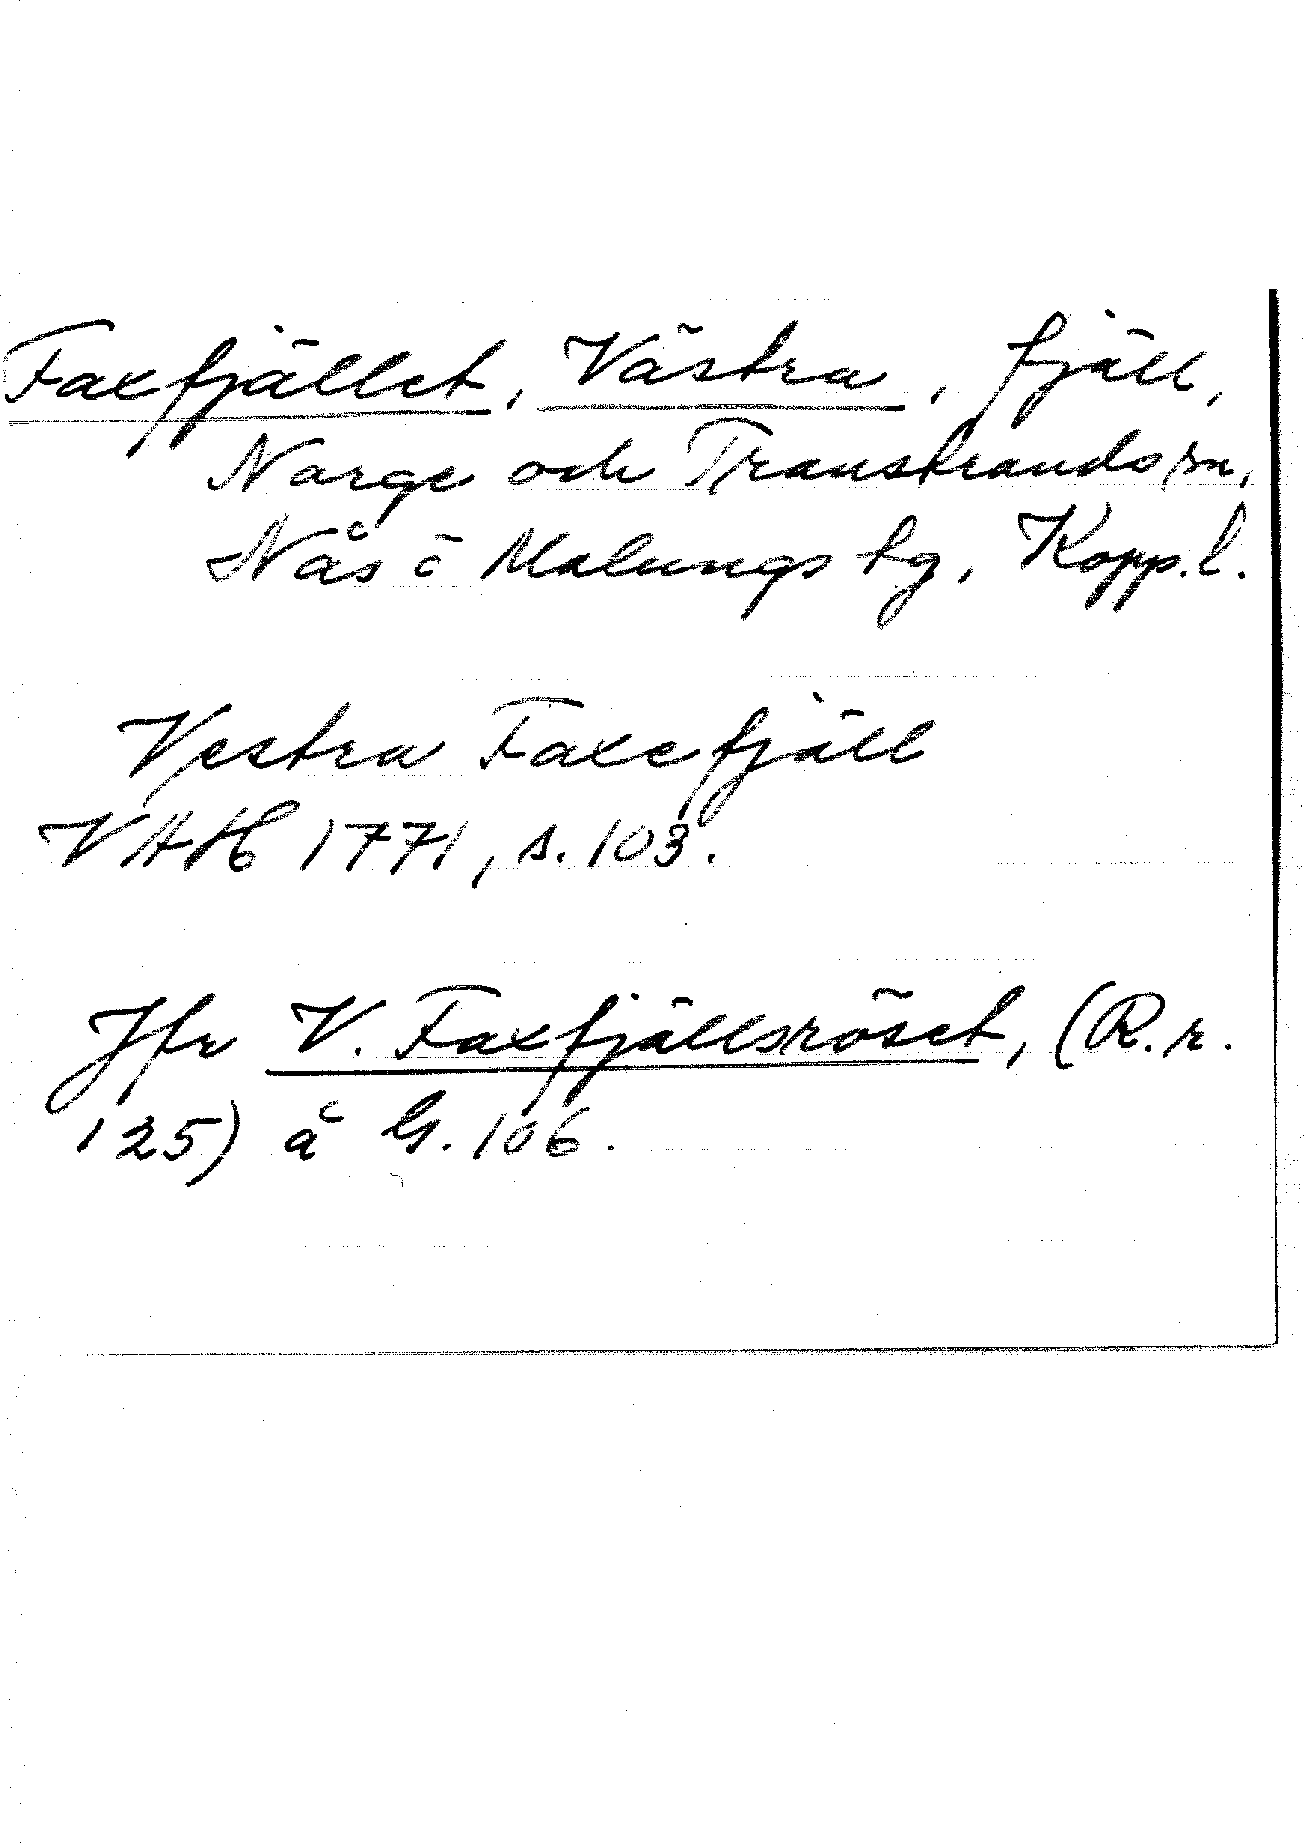 Faxfjället, Västra, fjäll,
Norge och Transtrands sn,
Nås o Malungs tg, Kopp.l.
Vestra Faxefjäll
VHH 1771, s. 103.
Jfr V. Faxfjällsröset, (R.r.
125) å G. 106.